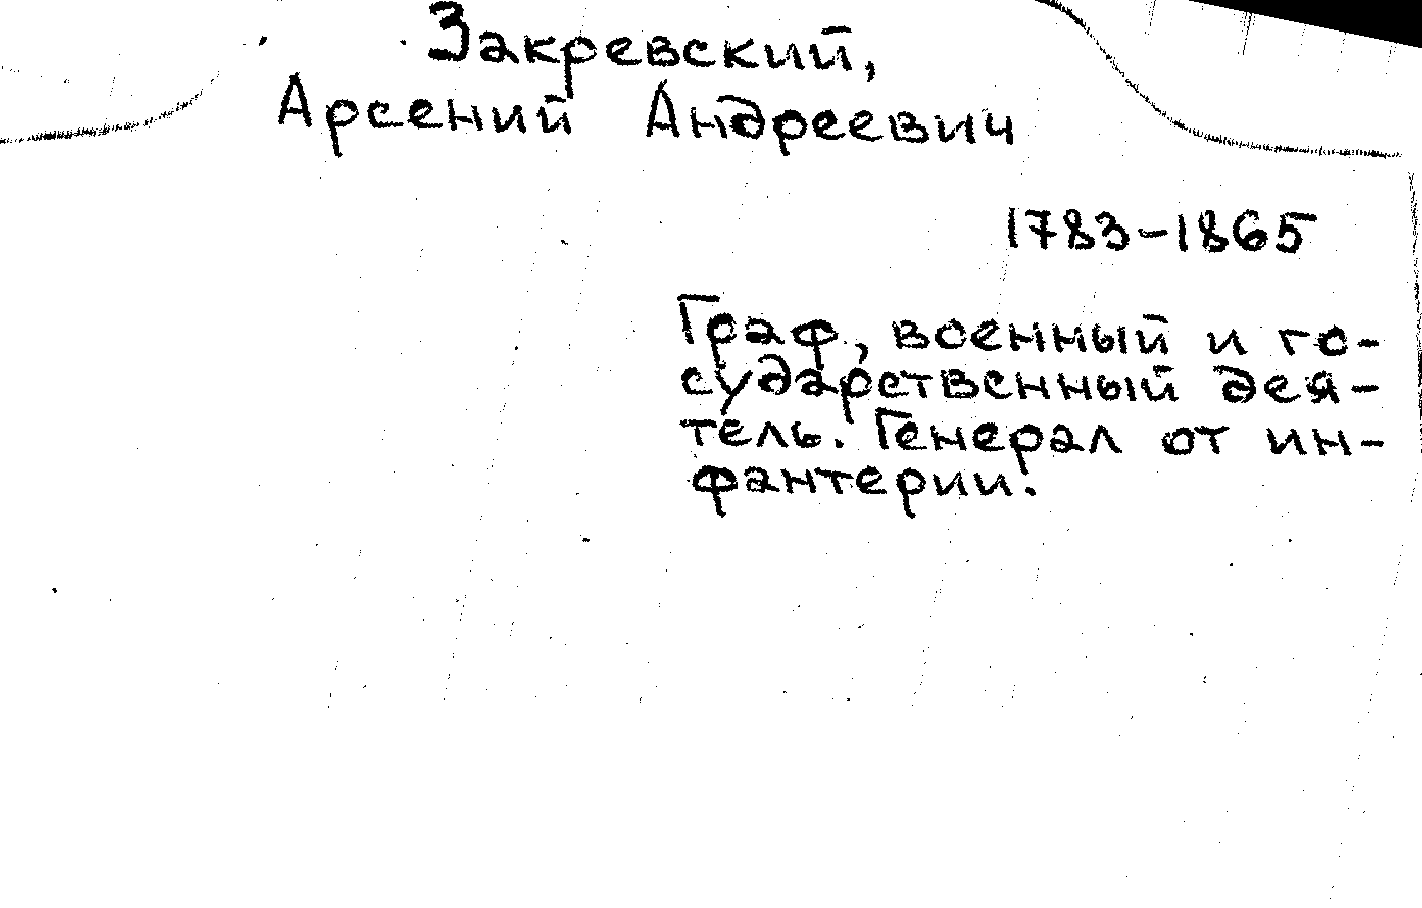 Закревский,
Арсений Андреевич
1783-1865
Граф, военный и го-
сударственный дея-
тель. Генерал от ин-
фантерии.